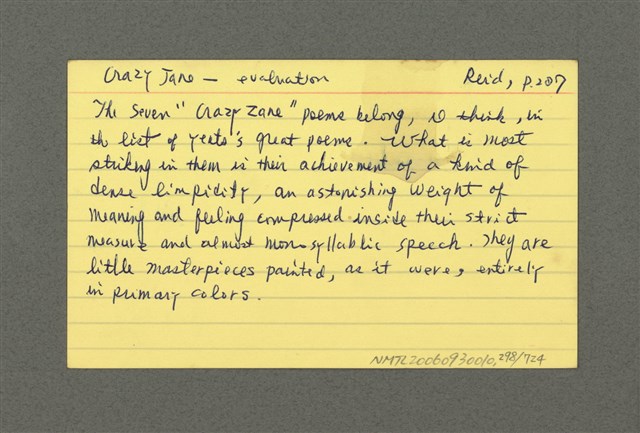 Crazy Jane — evaluation Reid, p.207
The seven "Crazy Zane" poems belong, I think, in
the list of Yeats's great poems. What is most
striking in them is their achievement of a kind of
dense limpidity, an astonishing weight of
meaning and feeling compressed inside their strict
measure and almost mon-syllabbic speech. They are
little masterpieces painted, as it were, entirely
in primary colors.
NMTL20060930010, 298/724